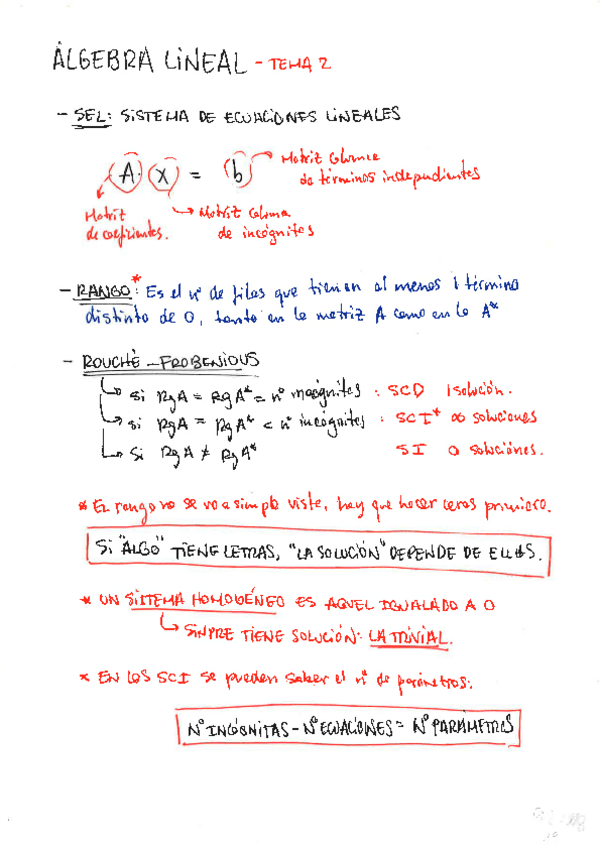 ÁLGEBRA LINEAL - TEMA 2
- SEL: SISTEMA DE ECUACIONES LINEALES
A · x = b
Matriz Columna de términos independientes
Matriz de coeficientes.
Matriz Columna de incógnitas
- RANGO*: Es el nº de filas que tienen al menos 1 término
distinto de 0, tanto en la matriz A como en la A*
- ROUCHÉ - FROBENIOUS
Si RgA = RgA* = nº incógnitas : SCD 1 solución.
Si RgA = RgA* < nº incógnitas : SCI* ∞ soluciones
Si RgA ≠ RgA* SI 0 soluciones.
* EL rango no se ve a simple vista, hay que hacer ceros primero.
Si "ALGO" TIENE LETRAS, "LA SOLUCIÓN" DEPENDE DE ELLAS.
* UN SISTEMA HOMOGÉNEO ES AQUEL IGUALADO A 0
SIMPRE TIENE SOLUCIÓN: LA TRIVIAL.
* EN LOS SCI se pueden saber el nº de parámetros:
Nº INCÓGNITAS - Nº ECUACIONES = Nº PARÁMETROS